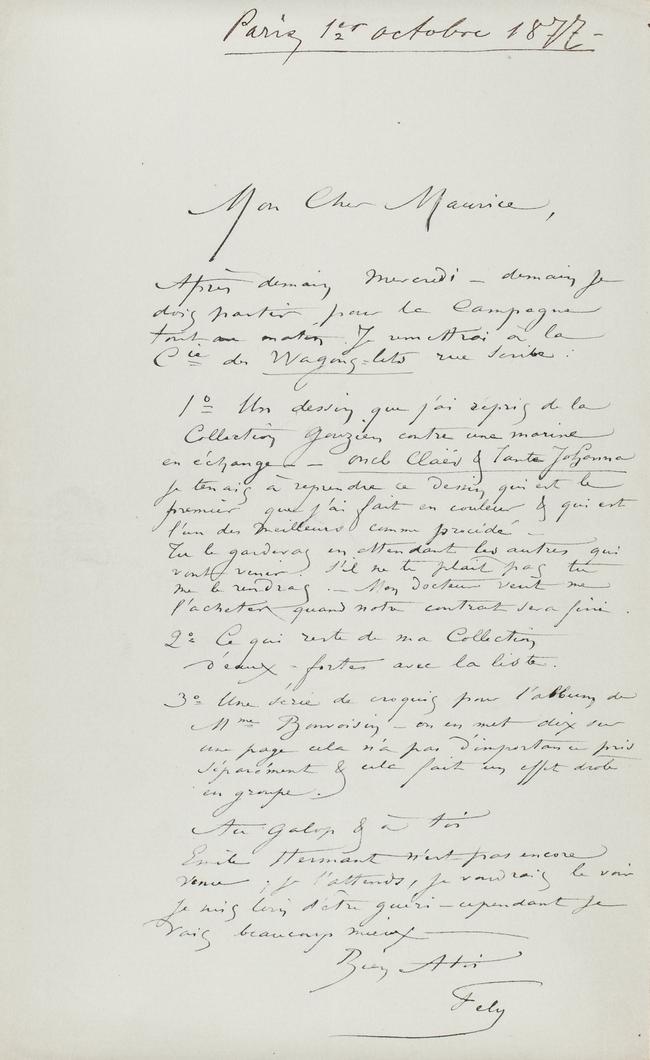 Paris, 1er octobre 1877 -
Mon Cher Maurice,
Après demain, Mercredi - demain je
dois partir pour la Campagne
tout au matin. Je remettrai à la
Cie des Wagons-lits rue Scribe :
1º Un dessin que j'ai repris de la
Collection Gouzien contre une marine
en échange - - oncle Claës & Tante Johanna
Je tenais à reprendre ce Dessin qui est le
premier que j'ai fait en couleur & qui est
l'un des meilleurs comme procédé -
Tu le garderas en attendant les autres qui
vont venir. S'il ne te plait pas tu
me le rendras. - Mon Docteur veut me
l'acheter quand notre contrat sera fini.
2º Ce qui reste de ma Collection
d'eaux-fortes avec la liste.
3º Une série de croquis pour l'album de
Mme Bonvoisin - on en met dix sur
une page cela n'a pas d'importance pris
séparément & cela fait un effet drole
en groupe.
Au galop & à toi
Emile Hermant n'est pas encore
venu ; je l'attends, je voudrais le voir
Je suis loin d'être guéri - cependant je
vais beaucoup mieux
Bien A toi
Fely